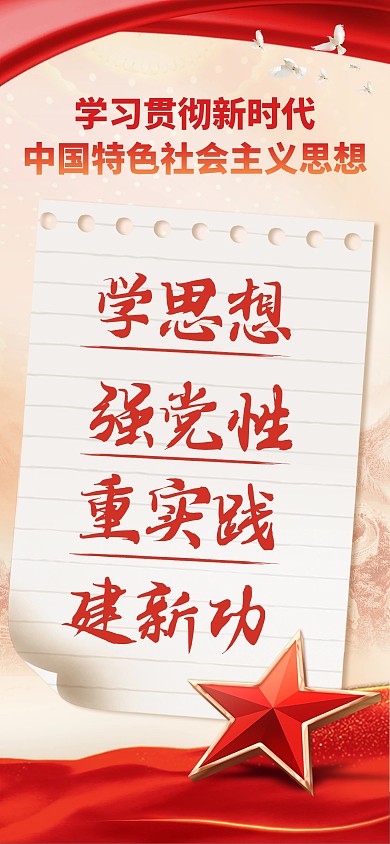 学习贯彻新时代
中国特色社会主义思想
学思想
强党性
重实践
建新功